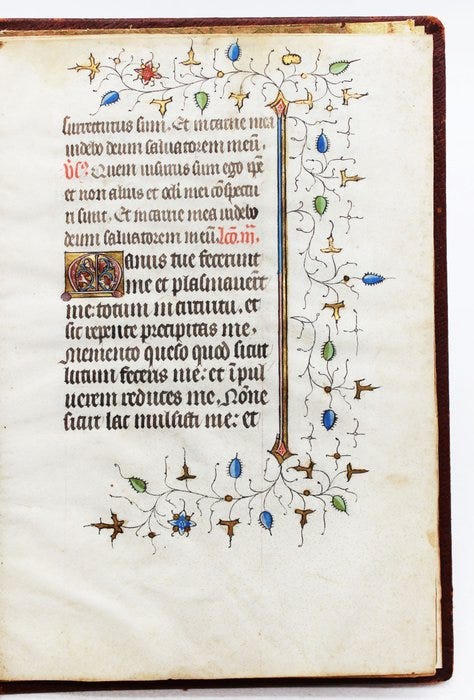 surrecturus sum. Et in carne mea
uidebo deum saluatorem meū.
v̄s. Quem uisurus sum ego ip̄e
et non alius et oc̄li mei cōspectu
ri sunt. Et in carne mea uidebo
deum saluatorem meū. Lc̄o. iii.
Manus tue fecerunt
me et plasmauer̄t
me: totum in circuitu, et
sic repente precipitas me.
Memento queso quod sicut
lutum feceris me: et ī pul
uerem reduces me. Nōne
sicut lac mulsisti me: et